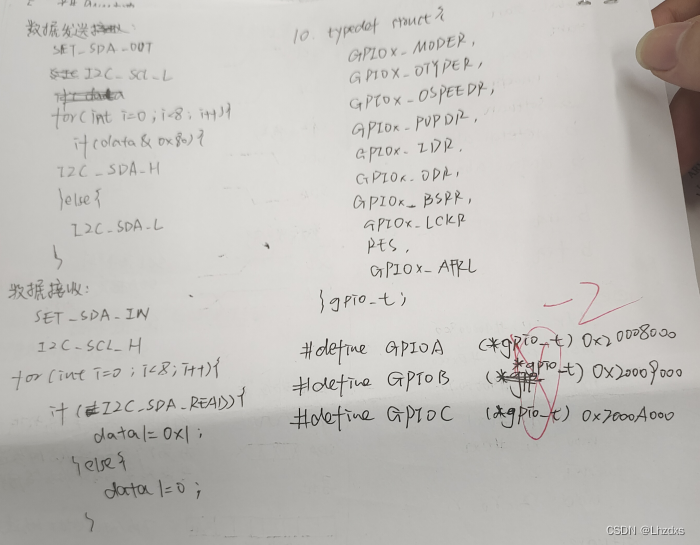 数据发送:
SET_SDA_OUT
I2C_SCL_L
for(int i=0;i<8;i++){
if(data & 0x80){
I2C_SDA_H
}else{
I2C_SDA_L
}
数据接收:
SET_SDA_IN
I2C_SCL_H
for(int i=0;i<8;i++){
if(I2C_SDA_READ){
data|=0x1;
}else{
data|=0;
}
10 typedef struct{
GPIOx_MODER,
GPIOx_OTYPER,
GPIOx_OSPEEDR,
GPIOx_PUPDR,
GPIOx_IDR,
GPIOx_ODR,
GPIOx_BSRR,
GPIOx_LCKR
RES,
GPIOx_AFRL
}gpio_t;
-2
#define GPIOA (*gpio_t) 0x20008000
#define GPIOB (*gpio_t) 0x20009000
#define GPIOC (*gpio_t) 0x2000A000
CSDN @Lhzdxs